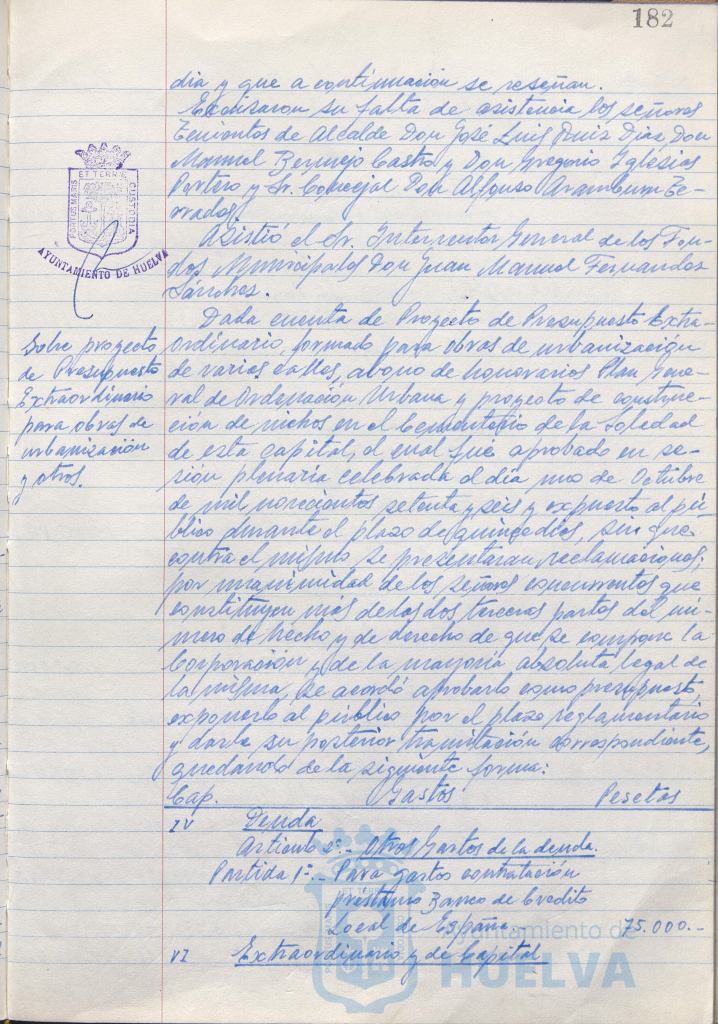 182
dia y que a continuación se reseñan.
Excusaron su falta de asistencia los señores
Tenientes de Alcalde Don José Luis Ruiz Diaz, Don
Manuel Bermejo Castro y Don Gregorio Iglesias
Portero y Sr. Concejal Don Alfonso Aramburu Te-
rrados.
Asistió el Sr. Interventor General de los Fon-
dos Municipales Don Juan Manuel Fernandez
Sánchez.
PORTUS MARIS
ET TERRE
CUSTODIA
AYUNTAMIENTO DE HUELVA
Sobre proyecto
de Presupuesto
Extraordinario
para obras de
urbanización
y otros.
Dada cuenta de Proyecto de Presupuesto Extra-
ordinario, formado para obras de urbanización
de varias calles, abono de honorarios Plan Gene-
ral de Ordenación Urbana y proyecto de construc-
ción de nichos en el Cementerio de la Soledad
de esta capital, el cual fué aprobado en se-
sión plenaria celebrada el día uno de Octubre
de mil novecientos setenta y seis y expuesto al pú-
blico durante el plazo de quince dias, sin que
contra el mismo se presentaran reclamaciones;
por unanimidad de los señores concurrentes que
constituyen más de las dos terceras partes del nú-
mero de hecho y de derecho de que se compone la
Corporación y de la mayoria absoluta legal de
la misma, se acordó aprobarlo como presupuesto,
exponerlo al público por el plazo reglamentario
y darle su posterior tramitación correspondiente,
quedando de la siguiente forma:
Cap. Gastos Pesetas
IV Deuda
Articulo 2º.- Otros Gastos de la deuda.
Partida 1ª.- Para gastos contratación
prestamo Banco de Credito
Local de España 75.000.-
VI Extraordinario y de Capital
Ayuntamiento de
HUELVA